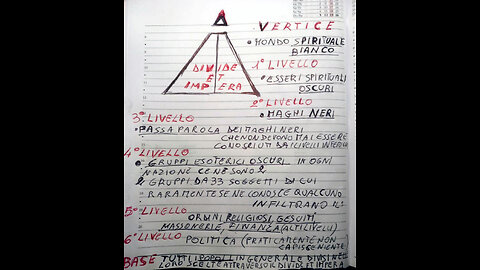 VERTICE
• MONDO SPIRITUALE
BIANCO
DIVIDE
ET
IMPERA
1° LIVELLO
• ESSERI SPIRITUALI
OSCURI
2° LIVELLO
• MAGHI NERI
3° LIVELLO
• PASSA PAROLA DEI MAGHI NERI
CHE NON DEVONO MAI ESSERE
CONOSCIUTI DAI LIVELLI
4° LIVELLO
• GRUPPI ESOTERICI OSCURI IN OGNI
NAZIONE CE NE SONO 2
2 GRUPPI DA 33 SOGGETTI DI CUI
RARAMENTE SE NE CONOSCE QUALCUNO
INFILTRANO IL
5° LIVELLO
ORDINI RELIGIOSI, GESUITI
MASSONERIE, FINANZA (ALTI LIVELLI)
6° LIVELLO
POLITICA (PRATICAMENTE NON
CAPISCE NIENTE)
BASE TUTTI I POPOLI IN GENERALE DIVISI NELLE
LORO SCELTE ATTRAVERSO IL DIVIDE ET IMPERA